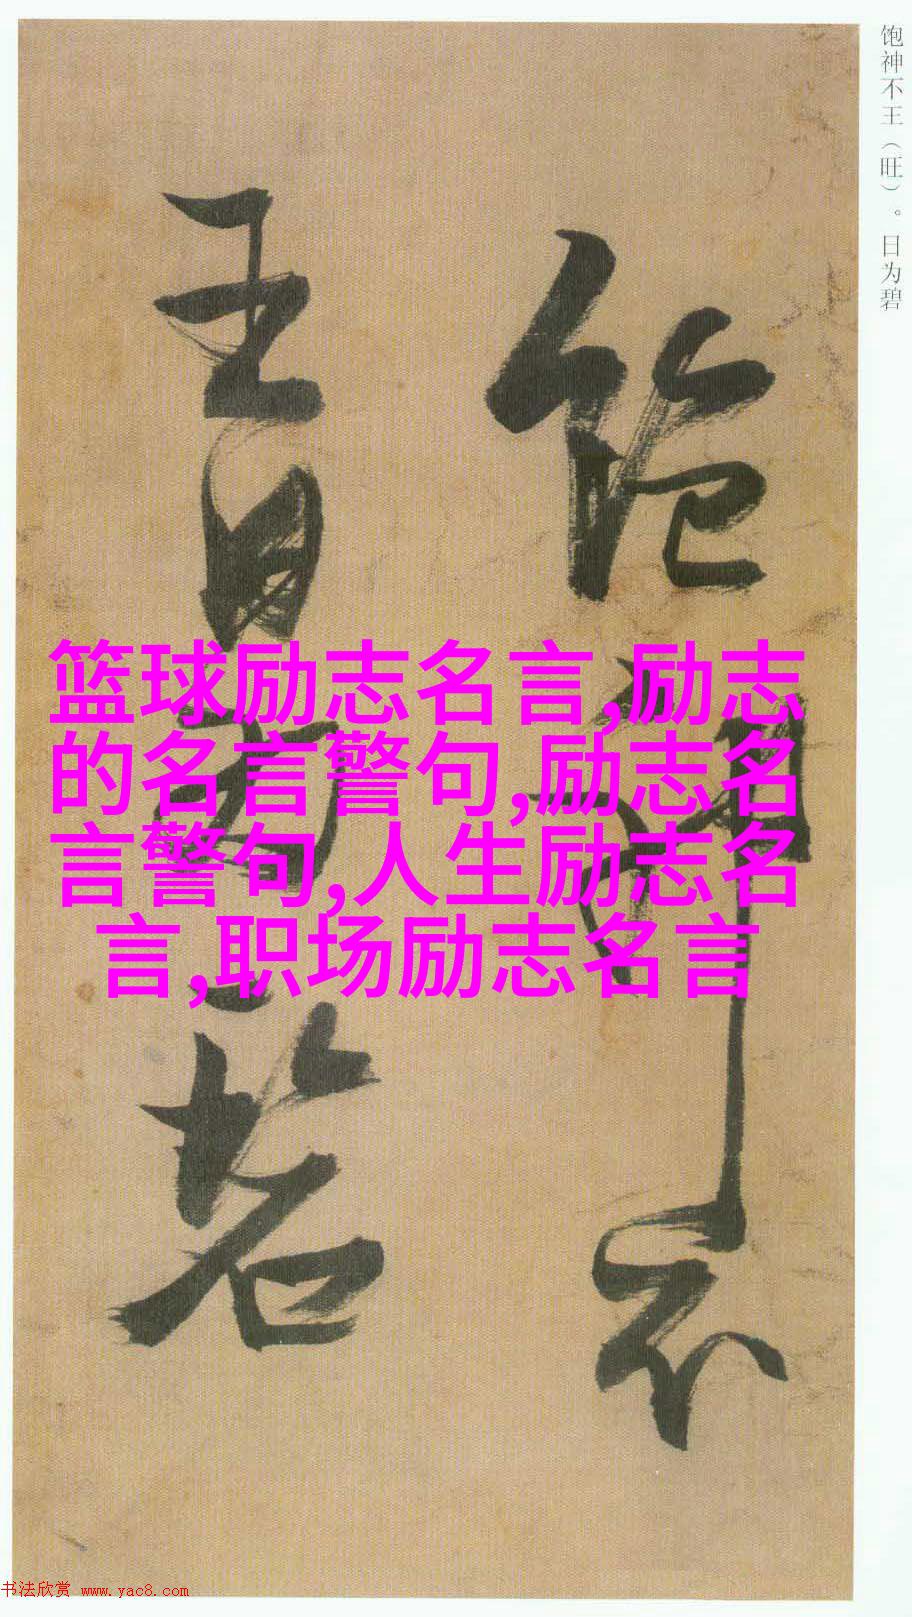 饱神不王（旺）。日为碧
饱神不
王日为碧
篮球励志名言,励志
的名言警句,励志名
言警句,人生励志名
言,职场励志名言
书法欣赏 www.yac8.com